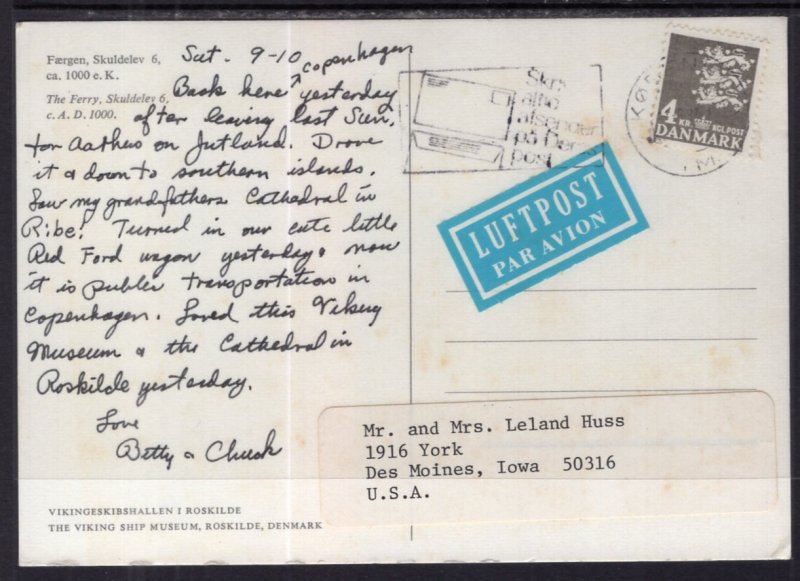 Færgen, Skuldelev 6,
ca. 1000 e. K.
The Ferry, Skuldelev 6,
c. A. D. 1000.
Sat. 9-10 Copenhagen
Back here ^ yesterday
after leaving last Sun.
for Aarhus on Jutland. Drove
it & down to southern islands.
Saw my grandfathers Cathedral in
Ribe! Turned in our cute little
Red Ford wagon yesterday & now
it is public transportation in
Copenhagen. Loved this Viking
Museum & the Cathedral in
Roskilde yesterday.
Love
Betty & Chuck
VIKINGESKIBSHALLEN I ROSKILDE
THE VIKING SHIP MUSEUM, ROSKILDE, DENMARK
Skriv
altid
afsender
på Deres
post
4
KR. KGL POST
DANMARK
LUFTPOST
PAR AVION
Mr. and Mrs. Leland Huss
1916 York
Des Moines, Iowa 50316
U.S.A.